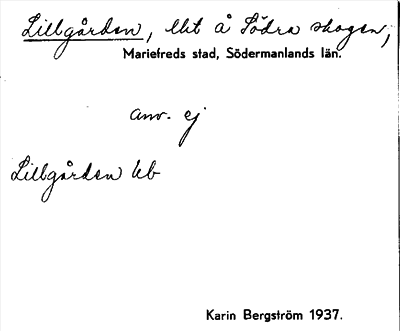 Lillgården, lht å Södra skogen,
Mariefreds stad, Södermanlands län.
anv. ej
Lillgården Ub
Karin Bergström 1937.